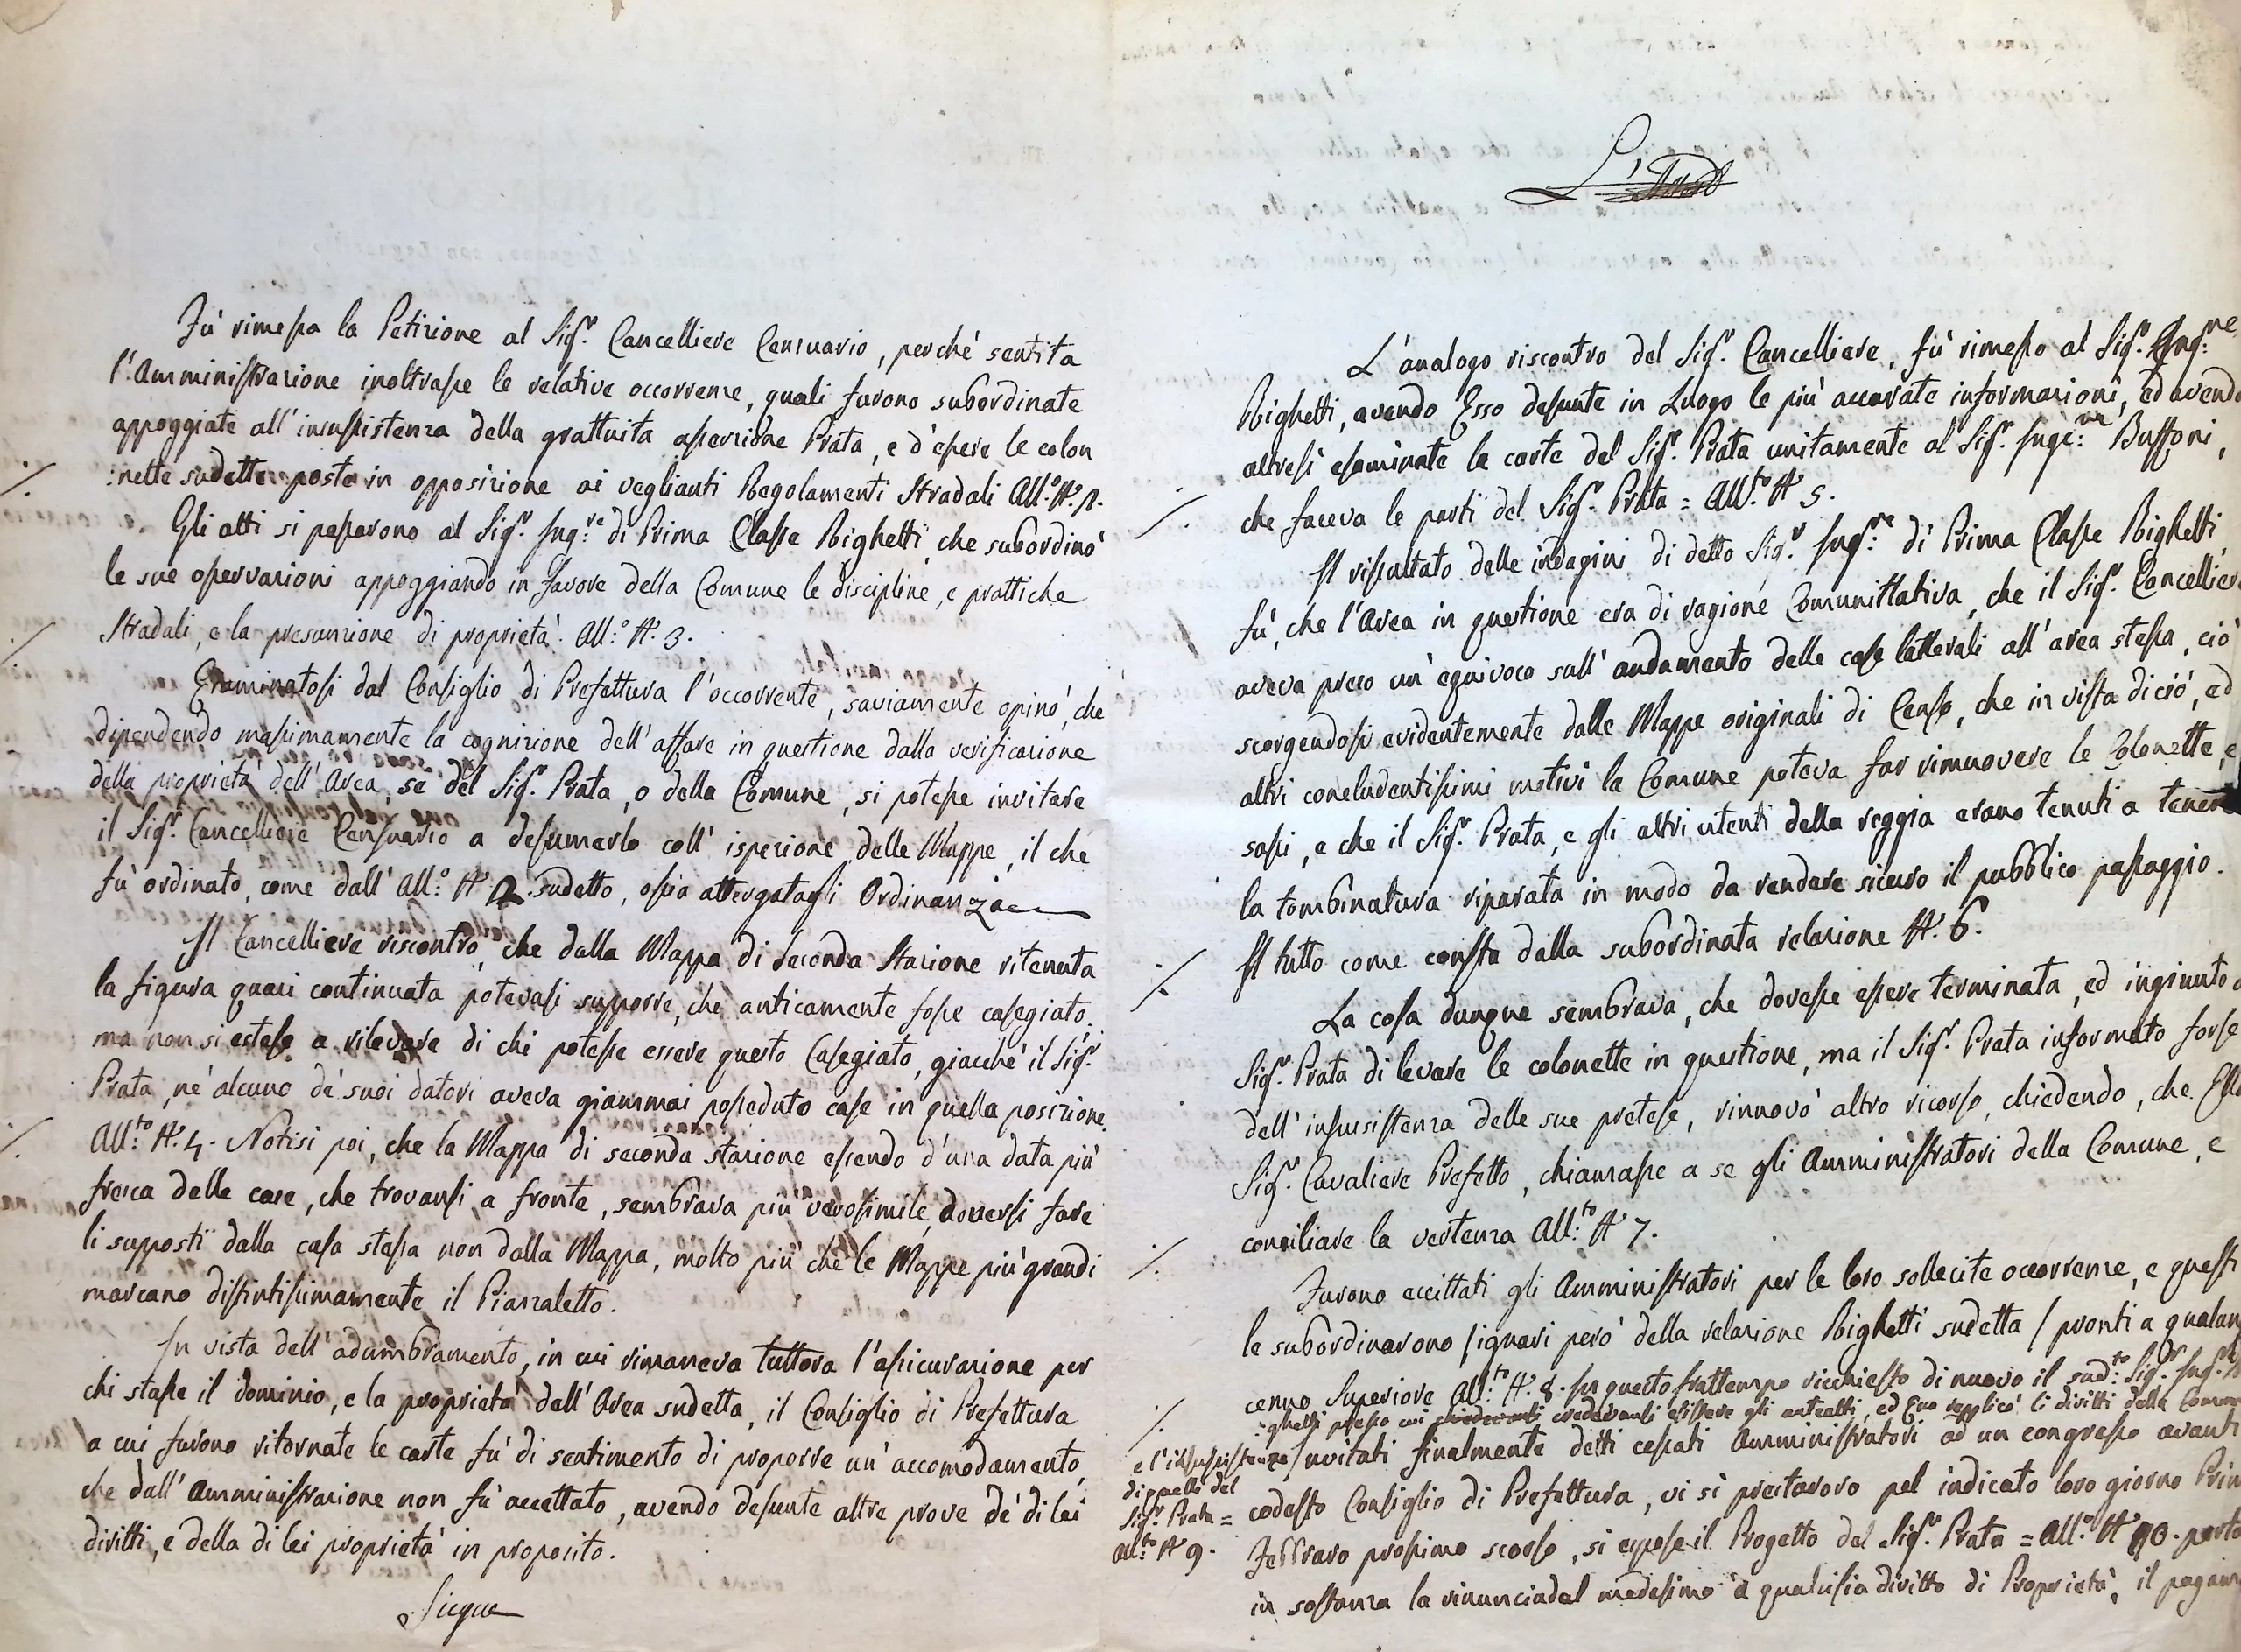 Fù rimessa la Petizione al Sig.r Cancelliere Censuario, perchè sentita
l'Amministrazione inoltrasse le relative occorrenze, quali furono subordinate
appoggiate all'insussistenza della grattuita asserzione Prata, e d'essere le colon
:nette sudette poste in opposizione ai veglianti Regolamenti Stradali All.o N.o 2.
Gli atti si passarono al Sig.r Ing.re di Prima Classe Righetti che subordinò
le sue osservazioni appoggiando in favore della Comune le discipline, e prattiche
Stradali, e la presunzione di proprietà. All.o N. 3.
Esaminatosi dal Consiglio di Prefettura l'occorrente, saviamente opinò, che
dipendendo massimamente la cognizione dell'affare in questione dalla verificazione
della proprietà dell'Area, se del Sig.r Prata, o della Comune, si potesse invitare
il Sig.r Cancelliere Censuario a desumerlo coll'ispezione delle Mappe, il che
fù ordinato, come dall'All.o N. 2. sudetto, ossia attergatagli Ordinanza
Il Cancelliere riscontrò, che dalla Mappa di seconda Stazione ritenuta
la figura quasi continuata potevasi supporre, che anticamente fosse casegiato,
ma non si estese a rilevare di chi potesse essere questo Casegiato, giacchè il Sig.r
Prata, nè alcuno de' suoi datori aveva giammai posseduto case in quella posizione.
All.to N. 4. Notisi poi, che la Mappa di seconda stazione essendo d'una data più
fresca delle case, che trovansi a fronte, sembrava più verosimile doversi fare
li supposti dalla casa stessa non dalla Mappa, molto più che le Mappe più grandi
marcano distintissimamente il Piazzaletto.
In vista dell'adombramento, in cui rimaneva tuttora l'assicurazione per
chi stasse il dominio, e la proprietà dell'Area sudetta, il Consiglio di Prefettura
a cui furono ritornate le carte fù di sentimento di proporre un'accomodamento,
che dall'Amministrazione non fù accettato, avendo desunte altre prove de' di lei
diritti, e della di lei proprietà in proposito.
Segue
L'
L'analogo riscontro del Sig.r Cancelliere, fù rimesso al Sig.r Ing.re
Righetti, avendo Esso desunte in Luogo le più accurate informazioni, ed avendo
altresì esaminate le carte del Sig.r Prata unitamente al Sig.r Inge:re Buffoni,
che faceva le parti del Sig.r Prata = All.to N. 5.
Il risultato delle indagini di detto Sig.r Ing.re di Prima Classe Righetti
fù, che l'Area in questione era di ragione Comunittativa, che il Sig.r Cancelliere
aveva preso un'equivoco sull'andamento delle case latterali all'area stessa, ciò
scorgendosi evidentemente dalle Mappe originali di Censo, che in vista di ciò, ed
altri concludentissimi motivi la Comune poteva far rimuovere le Colonette, e
sassi, e che il Sig.r Prata, e gli altri utenti della roggia erano tenuti a tenere
la tombinatura riparata in modo da rendere sicuro il pubblico passaggio.
Il tutto come consta dalla subordinata relazione N. 6.
La cosa dunque sembrava, che dovesse essere terminata, ed ingiunto
Sig.r Prata di levare le colonette in questione, ma il Sig.r Prata informato forse
dell'insussistenza delle sue pretese, rinnovò altro ricorso, chiedendo, che Ella
Sig.r Cavaliere Prefetto, chiamasse a se gli Amministratori della Comune, e
conciliare la vertenza All.to N. 7.
Furono eccittati gli Amministratori per le loro sollecite occorrenze, e questi
le subordinarono /ignari però della relazione Righetti sudetta/ pronti a qualun
cenno Superiore All.to N. 8. In questo frattempo ricchiesto di nuovo il sud.to Sig.r Ing.re
:ghetti presso cui credevansi esistere gli anteatti, ed Esso replicò li diritti della Comune
e l'insussistenza
di quelli del
Sig.r Prata =
All.to N. 9.
Invitati finalmente detti cessati Amministratori ad un congresso avanti
codesto Consiglio di Prefettura, vi si prestarono pel indicato loro giorno Prim
Febbraro prossimo scorso, si espose il Progetto del Sig.r Prata = All.o N. 10. porta
in sostanza la rinuncia del medesimo a qualsisia diritto di Proprietà, il pagam